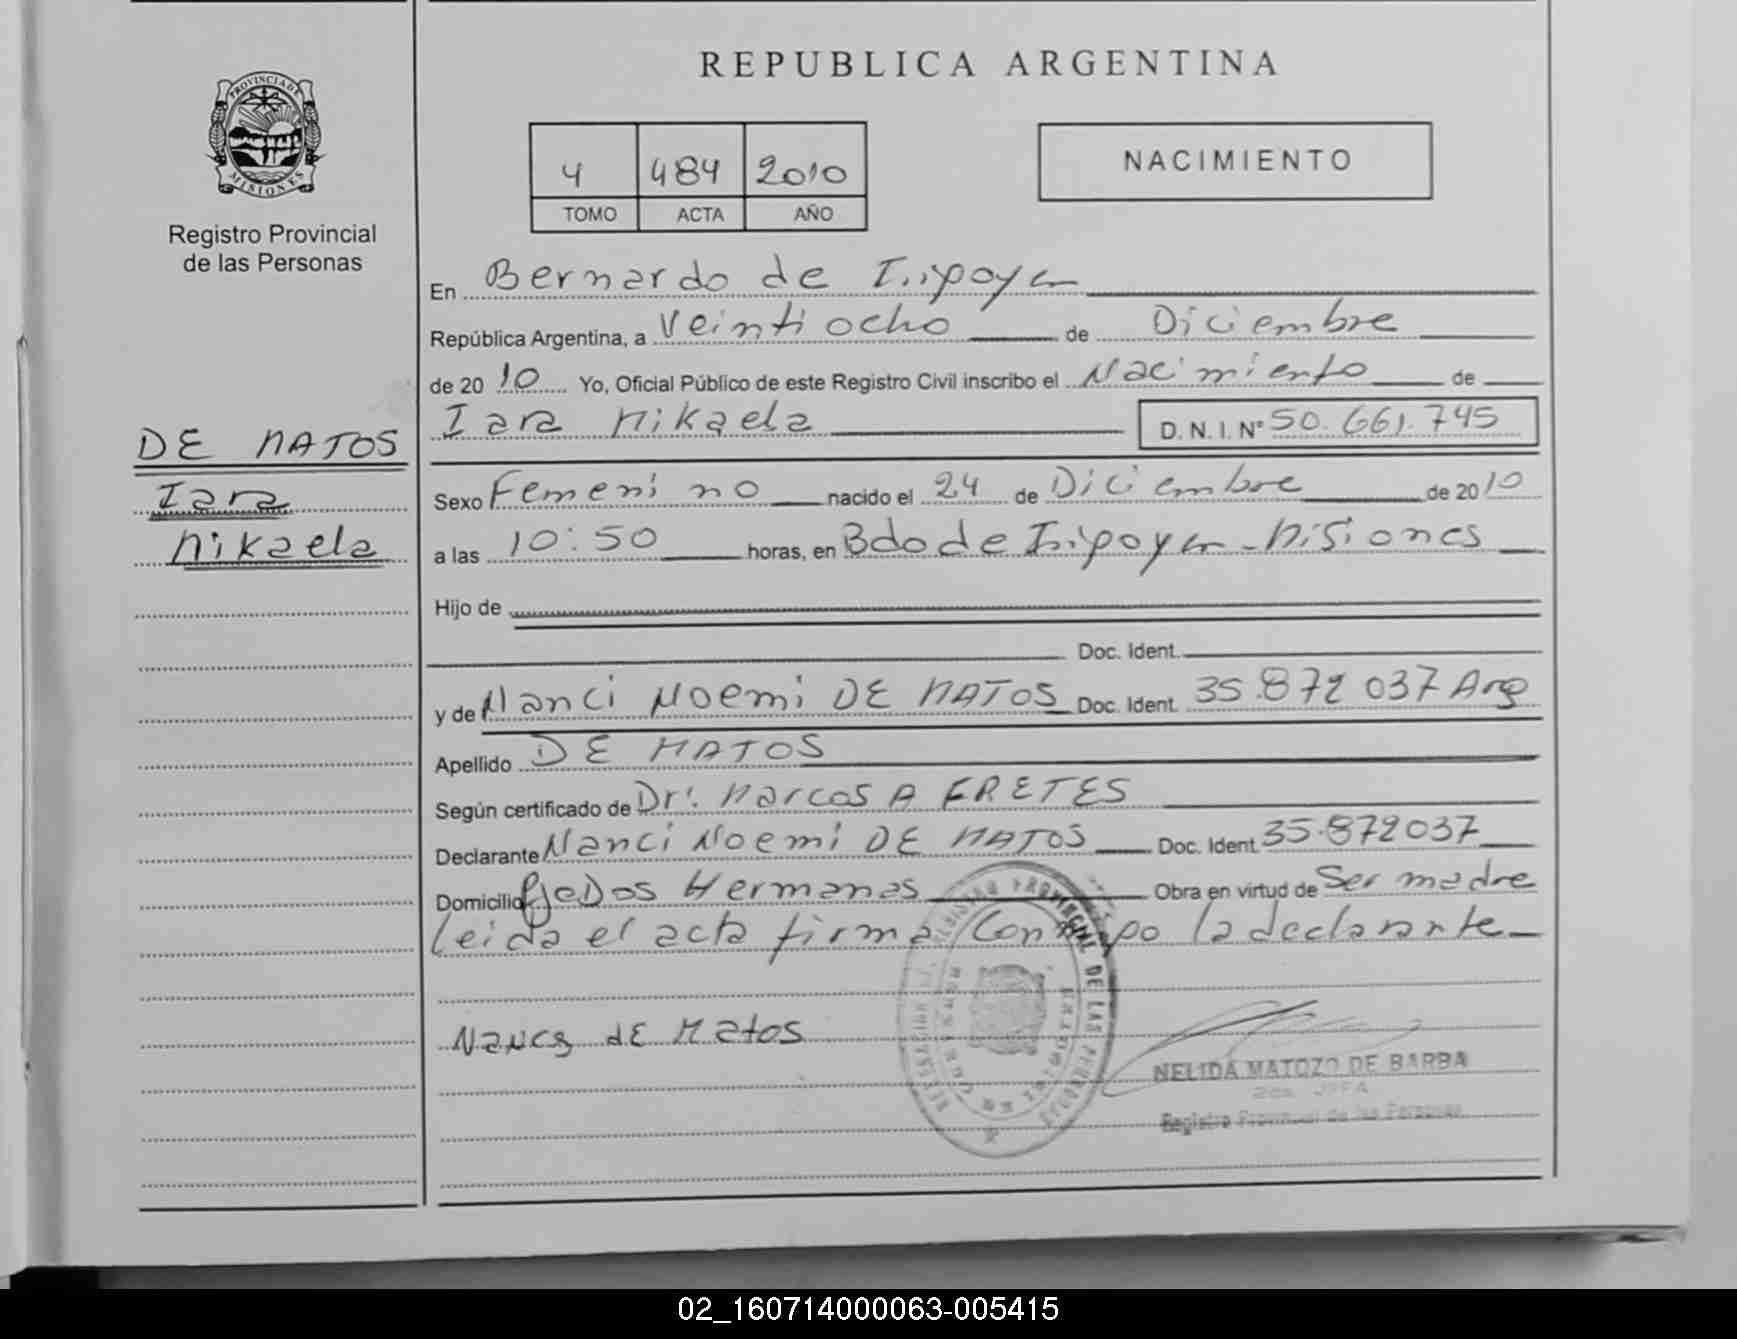 REPUBLICA ARGENTINA
PROVINCIA DE MISIONES
Registro Provincial
de las Personas
4 484 2010
TOMO ACTA AÑO
NACIMIENTO
En Bernardo de Irigoyen
República Argentina, a Veintiocho de Diciembre
de 2010 Yo, Oficial Público de este Registro Civil inscribo el Nacimiento de
Iara Mikaela D. N. I. Nº 50.661.745
DE MATOS
Iara
Mikaela
Sexo Femenino nacido el 24 de Diciembre de 2010
a las 10:50 horas, en Bdo de Irigoyen - Misiones
Hijo de
Doc. Ident.
y de Nanci Noemi DE MATOS Doc. Ident. 35.872 037 Arg
Apellido DE MATOS
Según certificado de Dr. Marcos A FRETES
Declarante Nanci Noemi DE MATOS Doc. Ident 35.872037
Domicilio Pje Dos Hermanas Obra en virtud de Ser madre
Leida el acta firma Conmigo la declarante
Nancy dE Matos
NELIDA MATOZO DE BARBA
Registro Provincial de las Personas
02_160714000063-005415